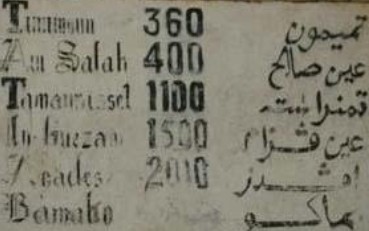 Timimoun 360 تميمون
Ain Salah 400 عين صالح
Tamanrassel 1100 تمنراست
In-Guezzam 1500 عين قزام
Agades 2010
Bamako